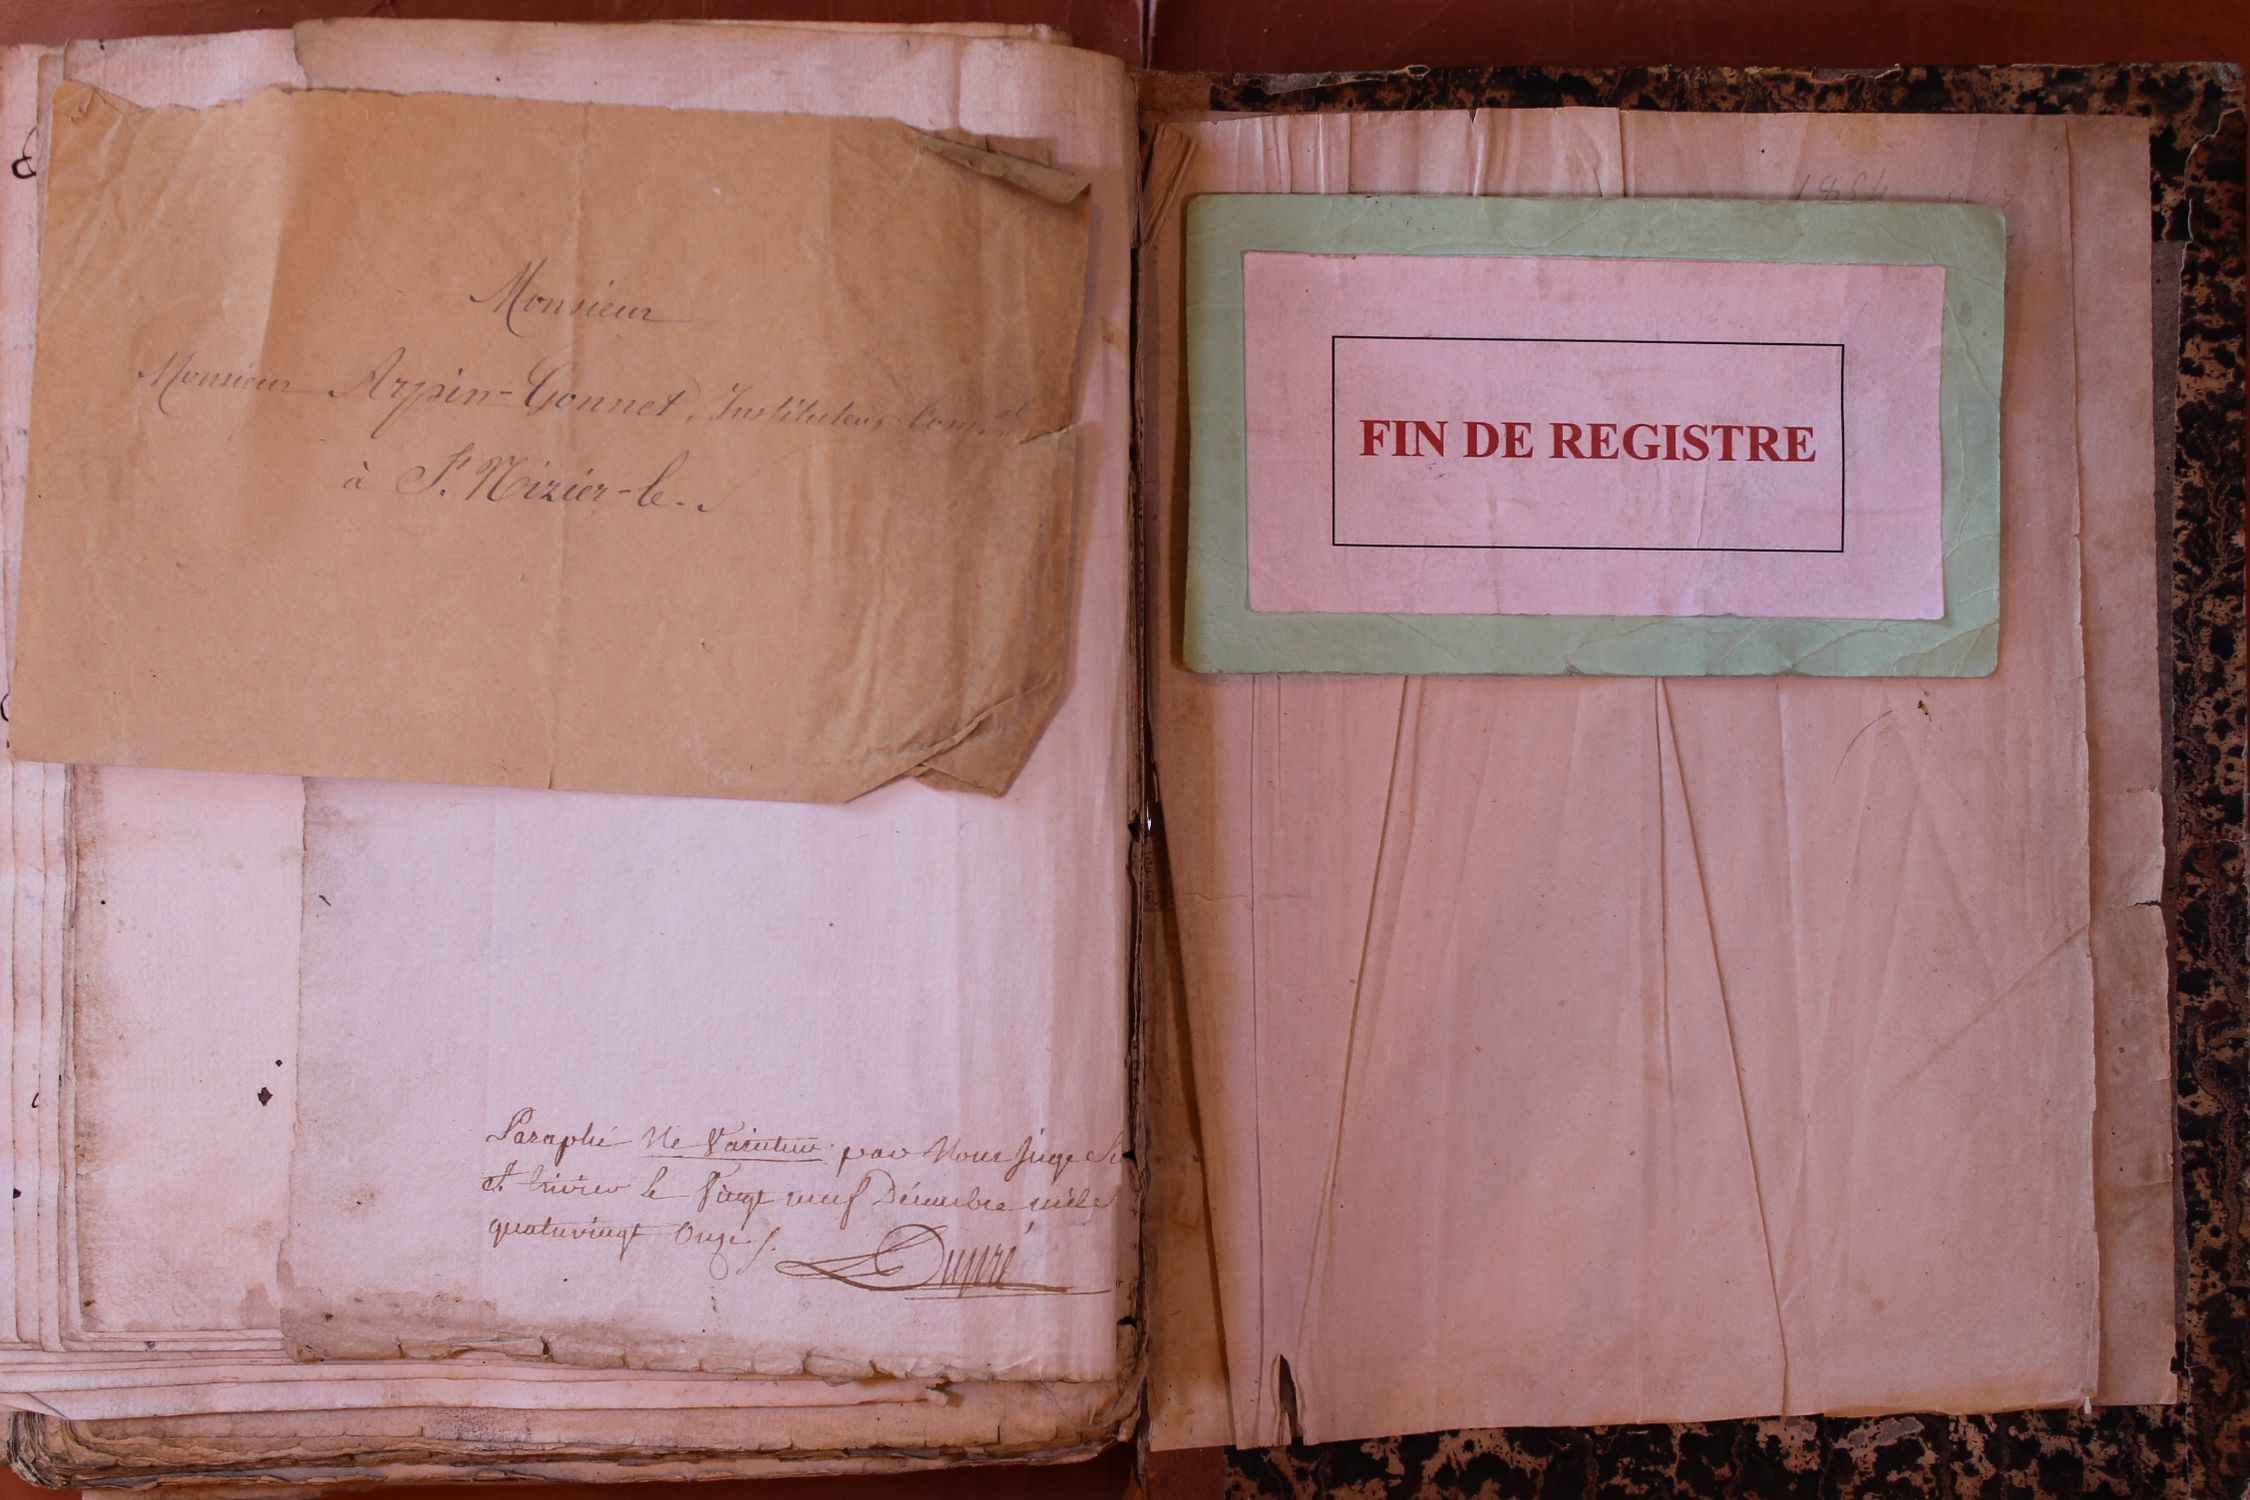 Monsieur
Monsieur Arpin-Gonnet, Instituteur Com.al
à St. Nizier-le-
Paraphé Ne Varietur par Nous Juge
St trivier le Vingt neuf Décembre mil
quatrevingt Onze
Dupré
1854
FIN DE REGISTRE